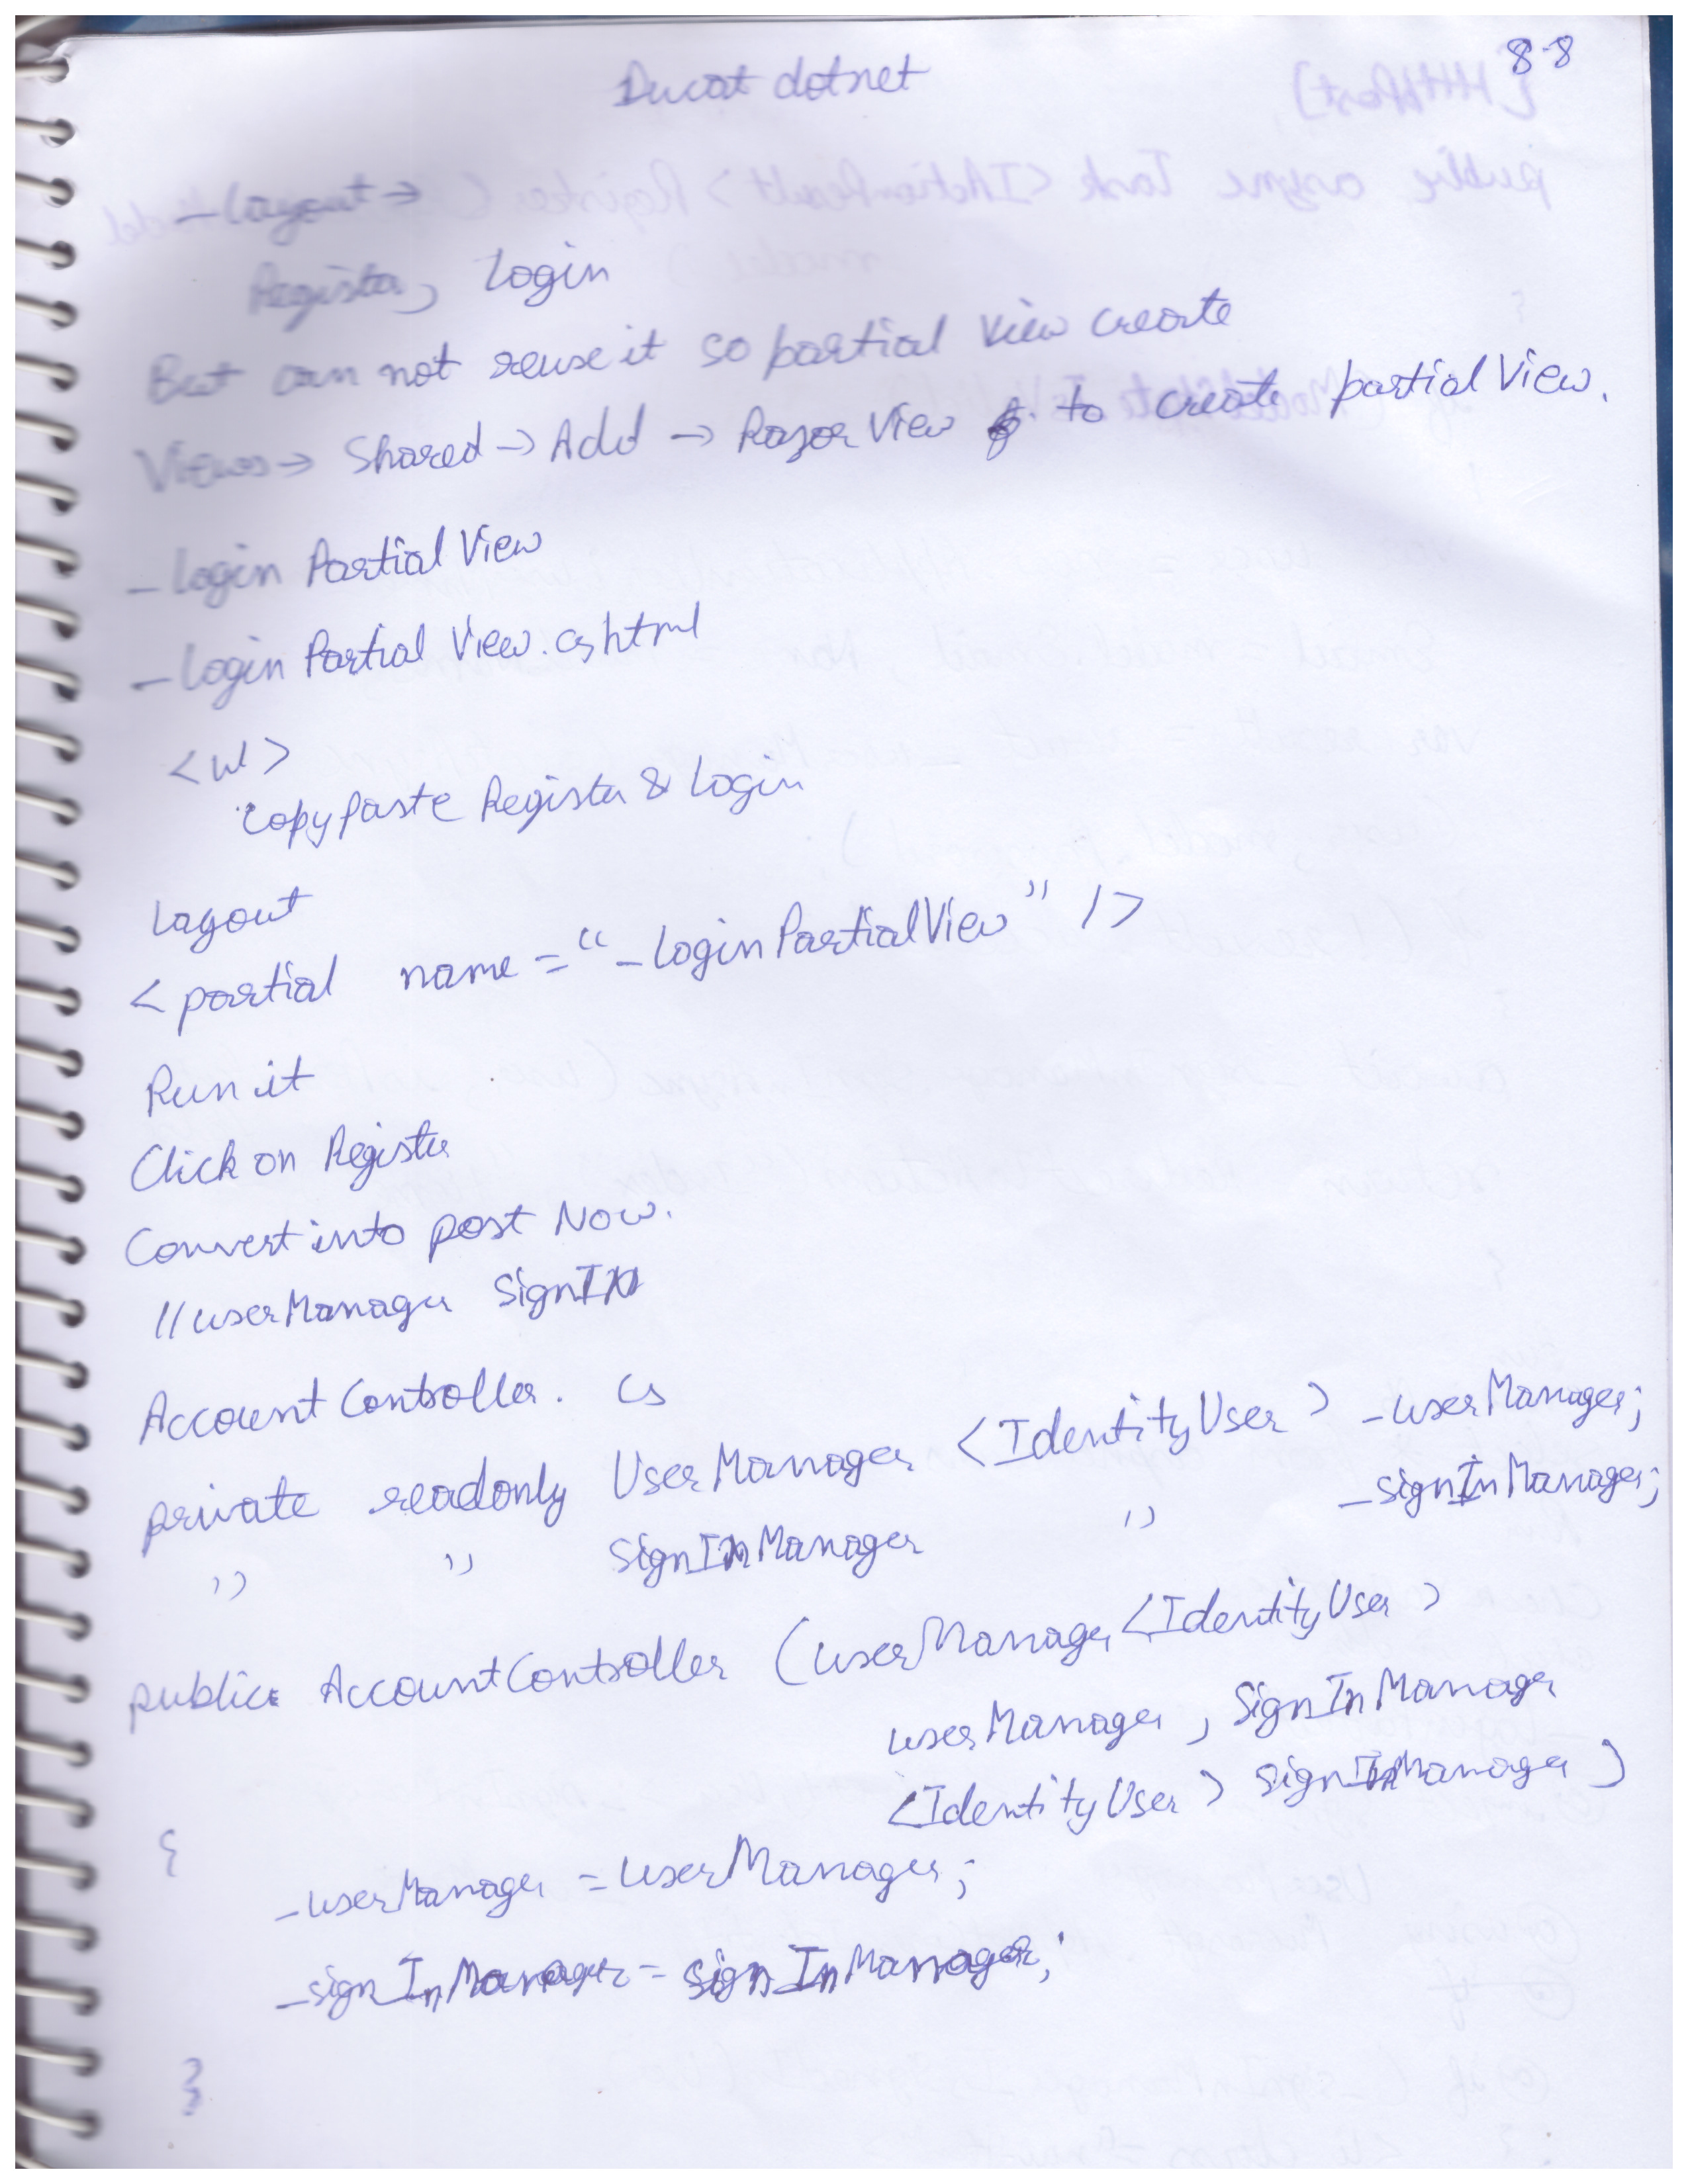 Ducat dotnet
8-8
_layout →
Register, Login
But can not reuse it so partial view create
Views → Shared → Add → Razor View to create partial View.
_login Partial View
_login Partial View.cshtml
<ul>
Copy paste Register & Login
Layout
<partial name = "_loginPartialView" />
Run it
Click on Register
Convert into post Now.
//userManager SignIN
AccountController. cs
private readonly UserManager <IdentityUser> _userManager;
" " SignInManager " _signInManager;
public AccountController (userManager<IdentityUser>
userManager, SignInManager
<IdentityUser> signInManager)
{
_userManager = userManager;
_signInManager = signInManager;
}